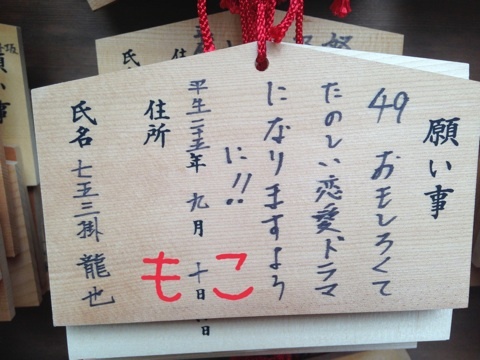 願い事
49 おもしろくて
たのしい恋愛ドラマ
になりますよう
に!!
平生二十五年 九月 十日
住所
氏名 七五三掛 龍也
もこ